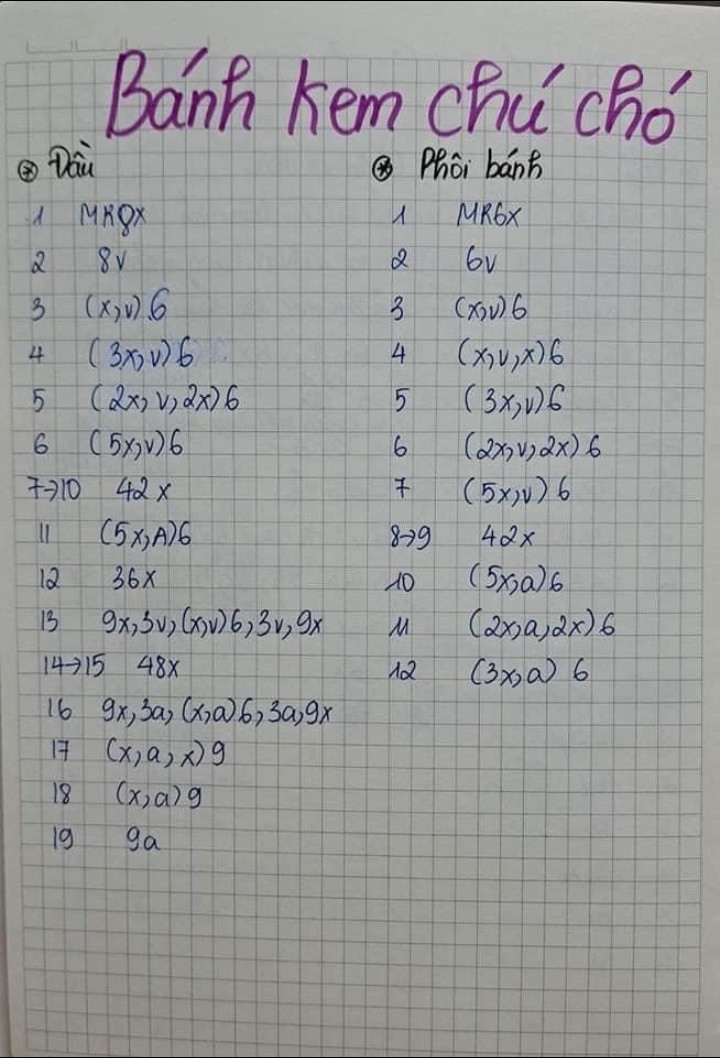 Bánh kem chú chó
⊛ Đầu
1 MR8x
2 8v
3 (x,v)6
4 (3x,v)6
5 (2x,v,2x)6
6 (5x,v)6
7→10 42x
11 (5x,A)6
12 36x
13 9x,3v,(x,v)6,3v,9x
14→15 48x
16 9x,3a,(x,a)6,3a,9x
17 (x,a,x)9
18 (x,a)9
19 9a
⊛ Phôi bánh
1 MR6x
2 6v
3 (x,v)6
4 (x,v,x)6
5 (3x,v)6
6 (2x,v,2x)6
7 (5x,v)6
8→9 42x
10 (5x,a)6
11 (2x,a,2x)6
12 (3x,a)6